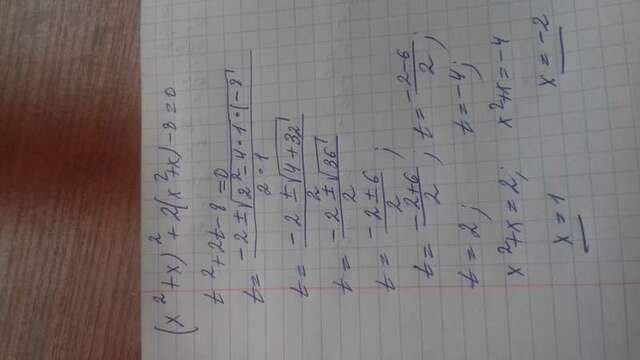 (x² + x)² + 2(x² + x) - 8 = 0
t² + 2t - 8 = 0
t = (-2 ± √(2² - 4 · 1 · (-8)) / (2 · 1)
t = (-2 ± √(4 + 32)) / 2
t = (-2 ± √36) / 2
t = (-2 ± 6) / 2 ;
t = (-2 + 6) / 2 , t = (-2 - 6) / 2 ;
t = 2 ; t = -4 ;
x² + x = 2 ; x² + x = -4
x = 1 x = -2